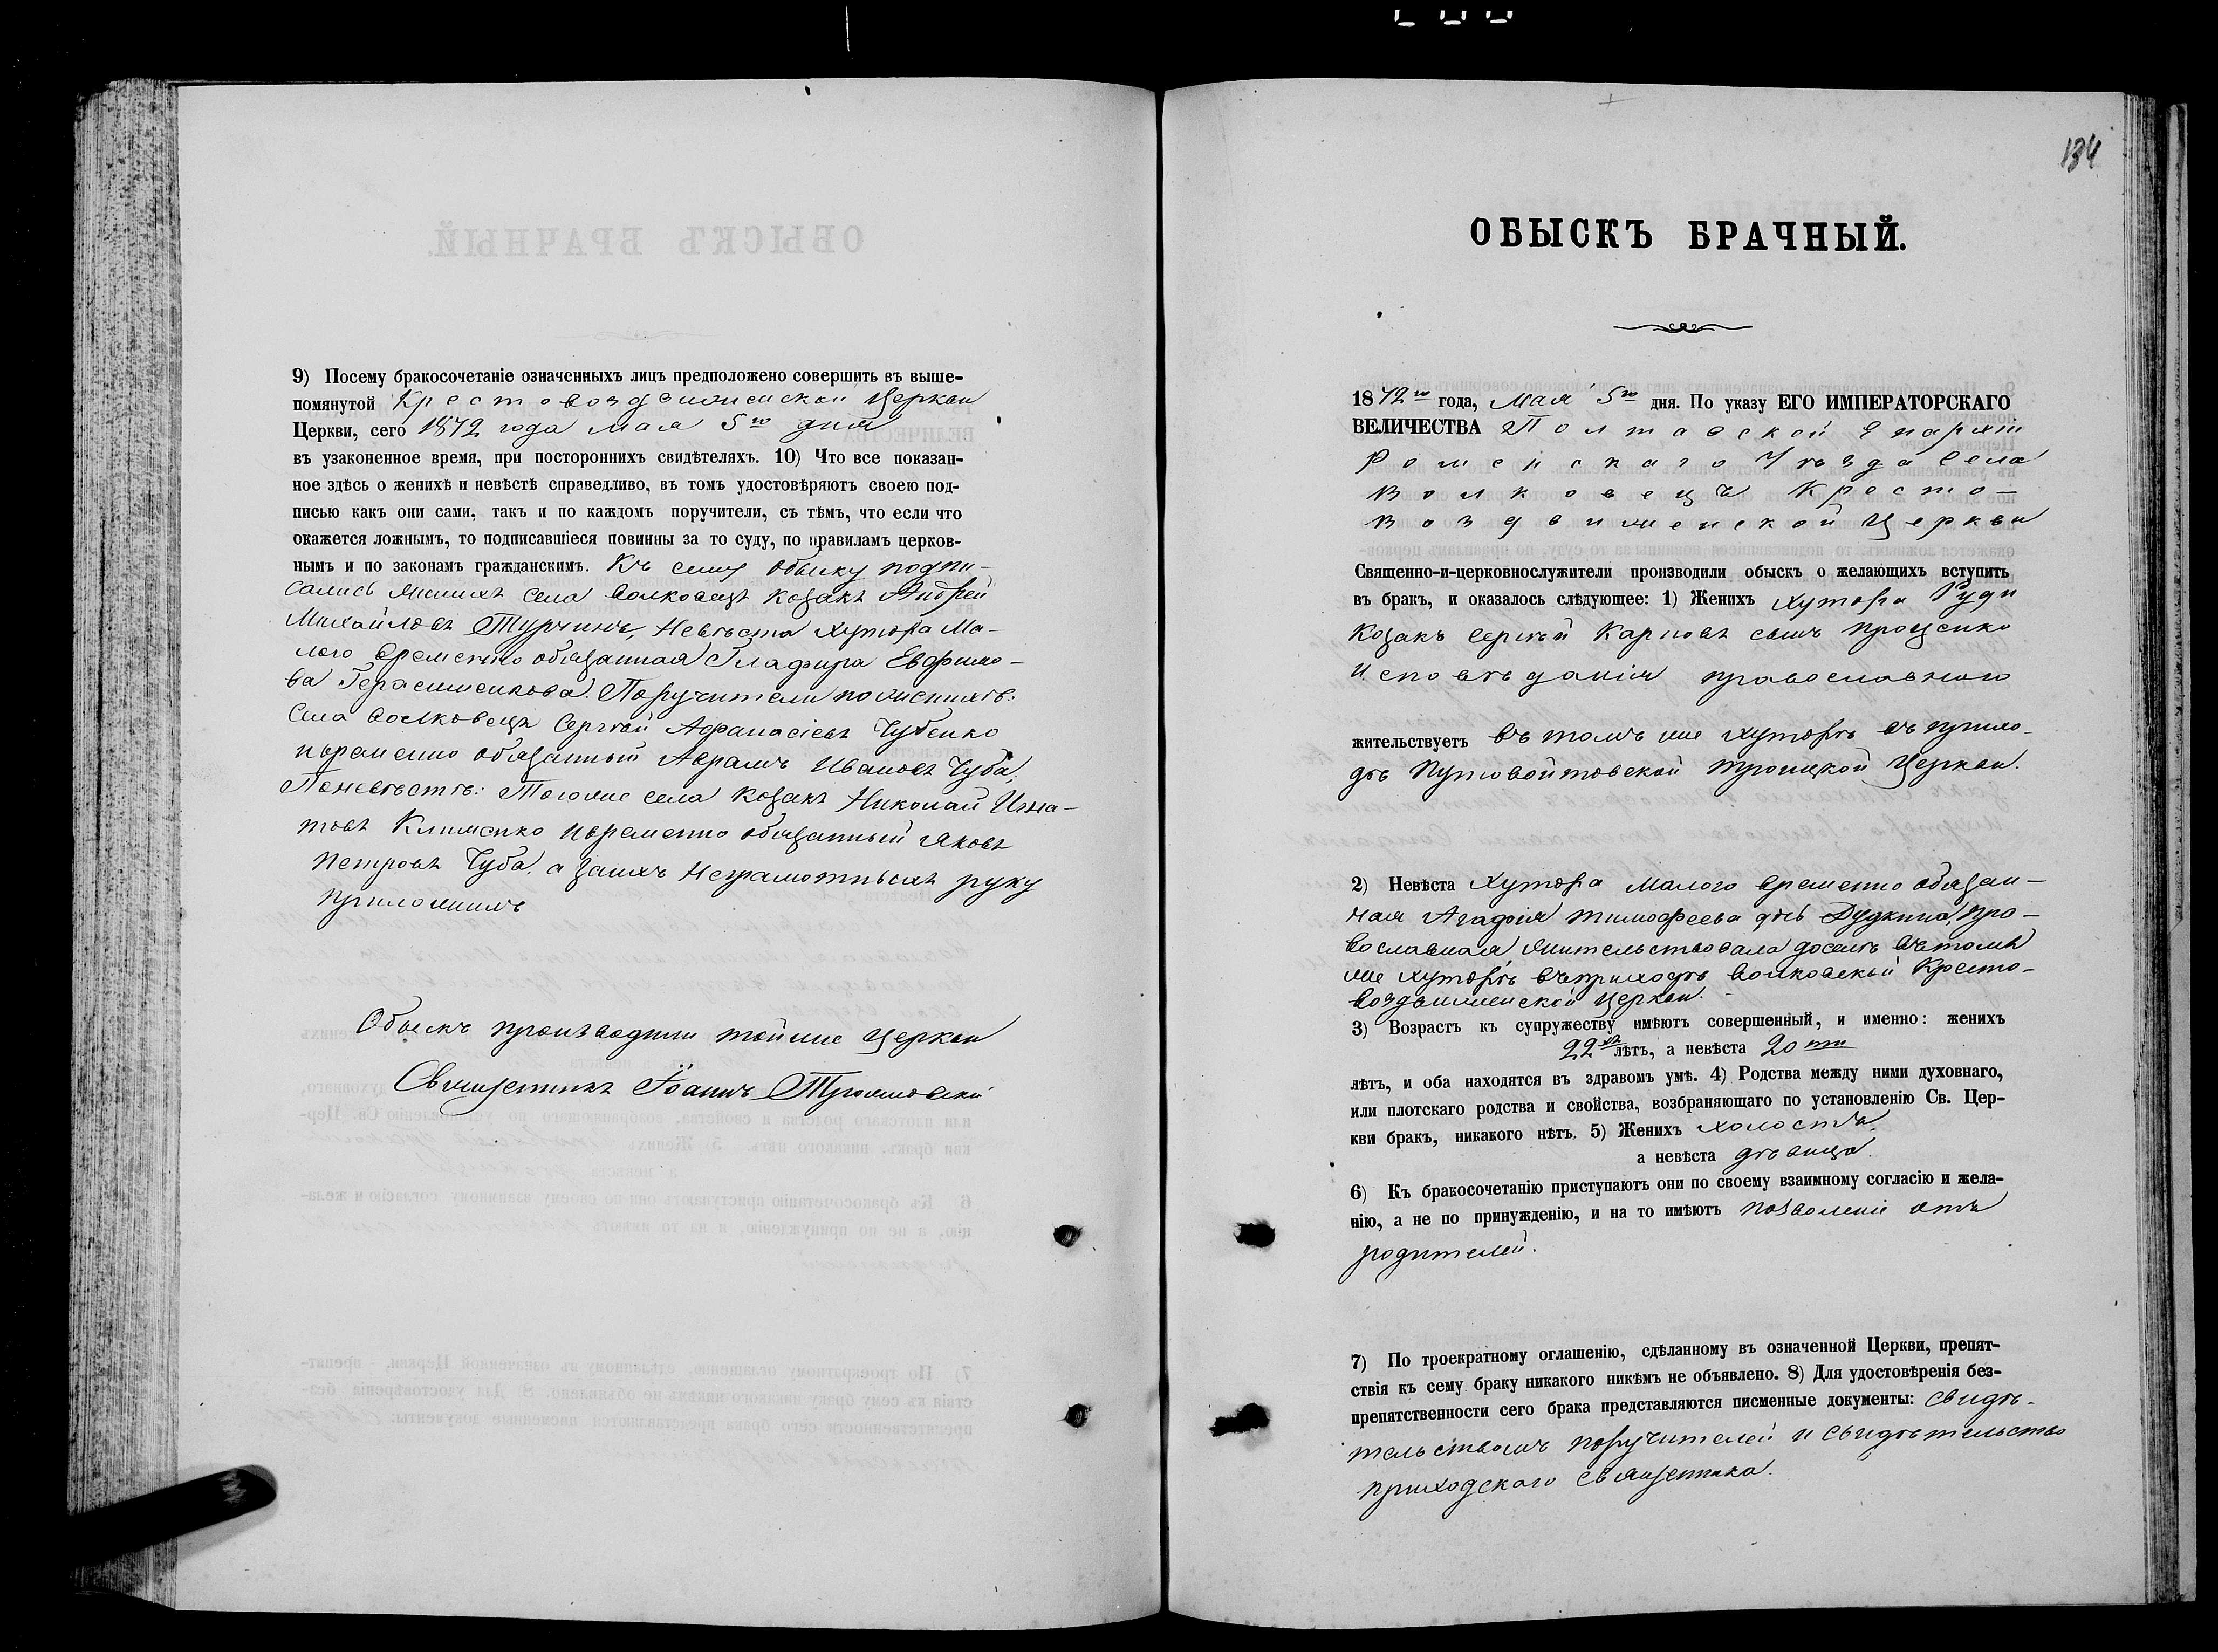 9) Посему бракосочетаніе означенныхъ лицъ предположено совершить въ выше-
помянутой Крестовоздвиженской Церкви
Церкви, сего 1872 года Мая 5го дня
въ узаконенное время, при постороннихъ свидѣтеляхъ. 10) Что все показан-
ное здѣсь о женихѣ и невѣстѣ справедливо, въ томъ удостовѣряютъ своею под-
писью какъ они сами, такъ и по каждомъ поручители, съ тѣмъ, что если что
окажется ложнымъ, то подписавшіеся повинны за то суду, по правиламъ церков-
нымъ и по законамъ гражданскимъ. Къ сему обыску подпи-
сались женихъ села Волковецъ козакъ Андрей
Михайловъ Турчинъ, Невѣста хутора Ма-
лого временно обязанная Гладфира Евфимо-
ва Герасименкова. Поручители по женихѣ:
Села Волковецъ Сергѣй Афанасіевъ Чубенко
и временно обязанный Аврамъ Ивановъ Чуба,
По невѣстѣ: Тогоже села козакъ Николай Игна-
товъ Клименко и временно обязанный Яковъ
Петровъ Чуба, а за нихъ неграмотныхъ руку
приложилъ
Обыскъ производили тойже Церкви
Священникъ Іоаннъ
134
ОБЫСКЪ БРАЧНЫЙ.
1872го года, Мая 5го дня. По указу ЕГО ИМПЕРАТОРСКАГО
ВЕЛИЧЕСТВА Полтавской Епархіи
Роменскаго Уѣзда Села
Волковецъ Кресто-
воздвиженской Церкви
Священно-и-церковнослужители производили обыскъ о желающихъ вступить
въ бракъ, и оказалось слѣдующее: 1) Женихъ хутора Руди
козакъ Сергѣй Карповъ сынъ Проценко
Исповѣданія православнаго
жительствуетъ въ томъ же хуторѣ въ прихо-
дѣ Пустовойтовской Троицкой Церкви.
2) Невѣста Хутора Малого временно обязан-
ная Агафія Тимофеева дѣв Дудкина, пра-
вославная, жительствовала доселѣ въ томъ
же хуторѣ въ приходѣ Волковской Кресто-
воздвиженской Церкви.
3) Возрастъ къ супружеству имѣютъ совершенный, и именно: женихъ
22хъ лѣтъ, а невѣста 20ти
лѣтъ, и оба находятся въ здравомъ умѣ. 4) Родства между ними духовнаго,
или плотскаго родства и свойства, возбраняющаго по установленію Св. Цер-
кви бракъ, никакого нѣтъ. 5) Женихъ холостъ,
а невѣста дѣвица.
6) Къ бракосочетанію приступаютъ они по своему взаимному согласію и жела-
нію, а не по принужденію, и на то имѣютъ позволеніе отъ
родителей.
7) По троекратному оглашенію, сдѣланному въ означенной Церкви, препят-
ствія къ сему браку никакого никѣмъ не объявлено. 8) Для удостовѣренія без-
препятственности сего брака представляются писменные документы: Свидѣ-
тельствомъ поручителей и свидѣтельство
приходскаго священника.